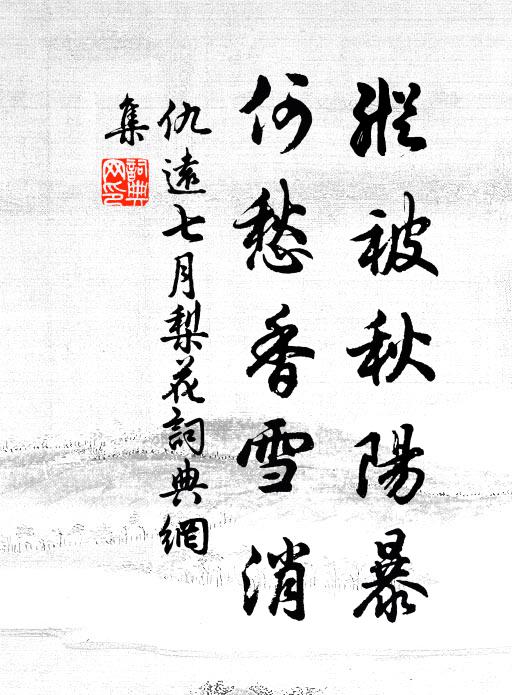 縱被秋陽暴
何愁香雪消
仇遠七月梨花詞典網
集
詞典
网印